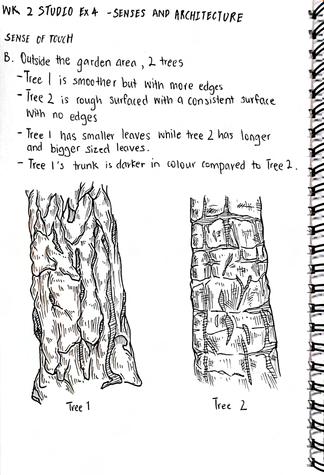 WK 2 STUDIO EX 4 - SENSES AND ARCHITECTURE
SENSE OF TOUCH
B. Outside the garden area, 2 trees
- Tree 1 is smoother but with more edges
- Tree 2 is rough surfaced with a consistent surface
with no edges
- Tree 1 has smaller leaves while tree 2 has longer
and bigger sized leaves.
- Tree 1's trunk is darker in colour compared to Tree 2.
Tree 1
Tree 2